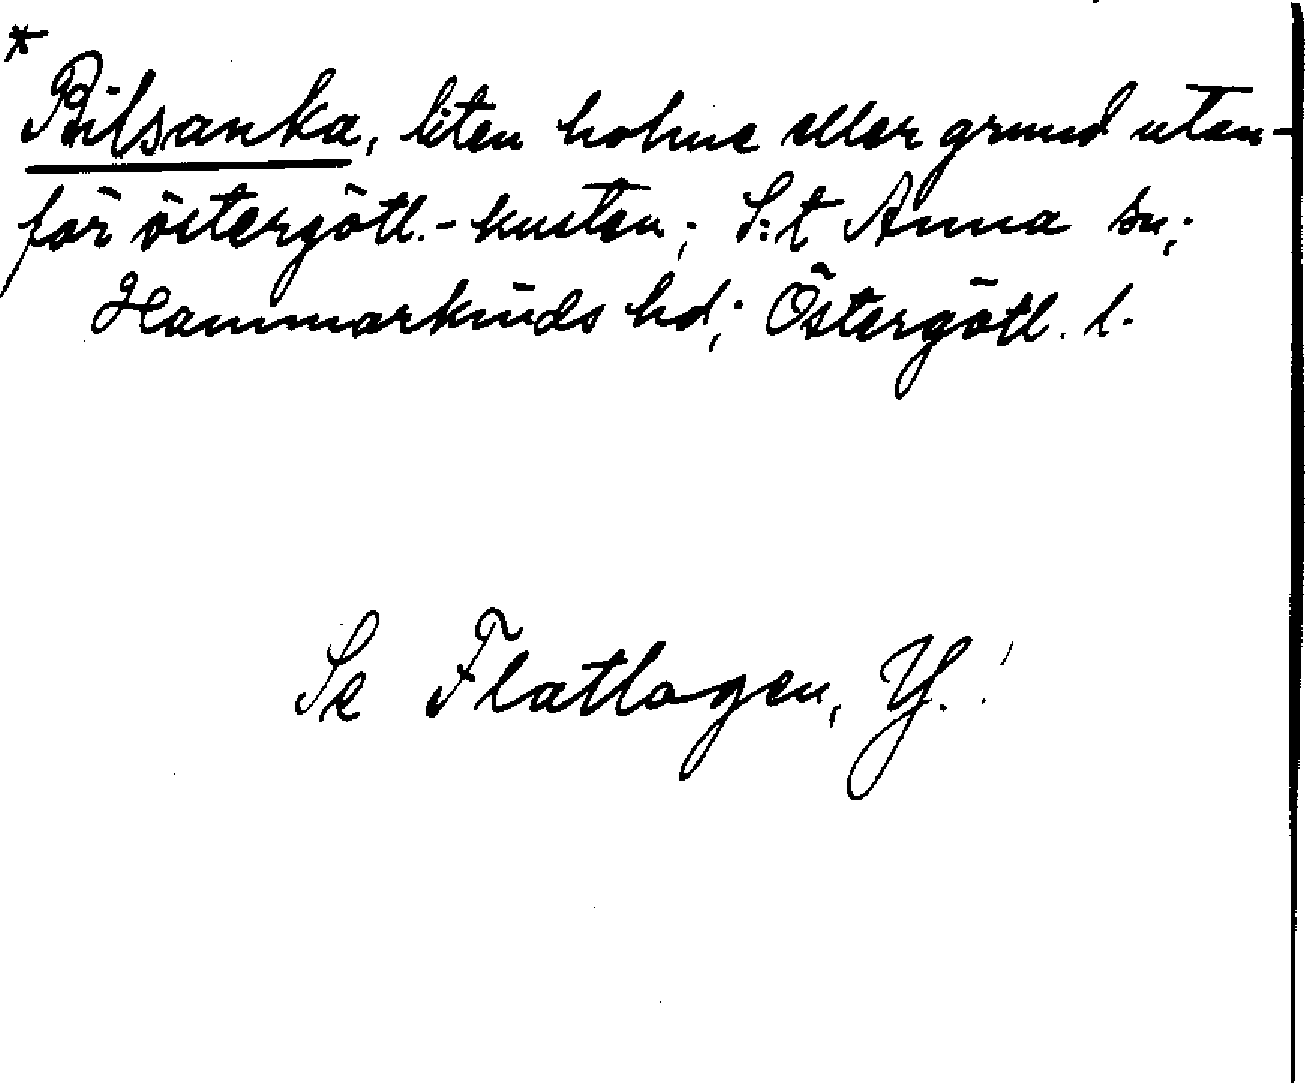 * Bilsanka, liten holme eller grund utan-
för östergötl.-kusten; S:t Anna sn;
Hammarkinds hd; Östergötl. l.
Se Flatlogen, Y.!